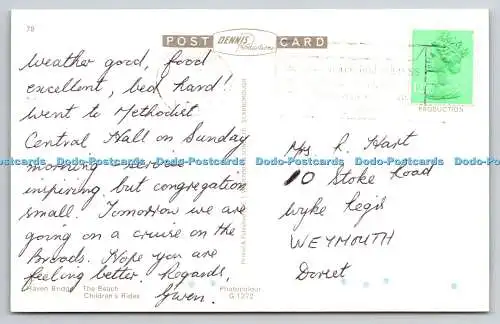 78
POST DENNIS Productions CARD
PRODUCTION
weather good, food
excellent, bed hard!
went to Methodist
Central Hall on Sunday
morning service
inspiring but congregation
small. Tomorrow we are
going on a cruise on the
Broads. Hope you are
feeling better. Regards,
Gwen.
Mrs. R. Hart
10 Stoke Road
Wyke Regis
WEYMOUTH
Dorset
Haven Bridge The Beach
Children's Rides
Photocolour
G 1272
Dodo-Postcards Dodo-Postcards Dodo-Postcards Dodo-Postcards Dodo-Postcards Dodo-Postcards